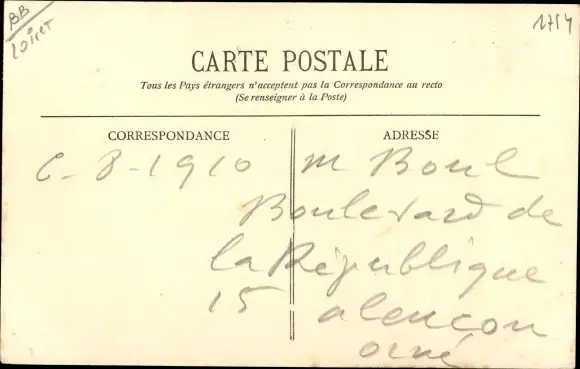 BB
Loiret
1754
CARTE POSTALE
Tous les Pays étrangers n'acceptent pas la Correspondance au recto
(Se renseigner à la Poste)
CORRESPONDANCE
ADRESSE
6-8-1910
M Boul
Boulevard de
la République
15 alençon
orne